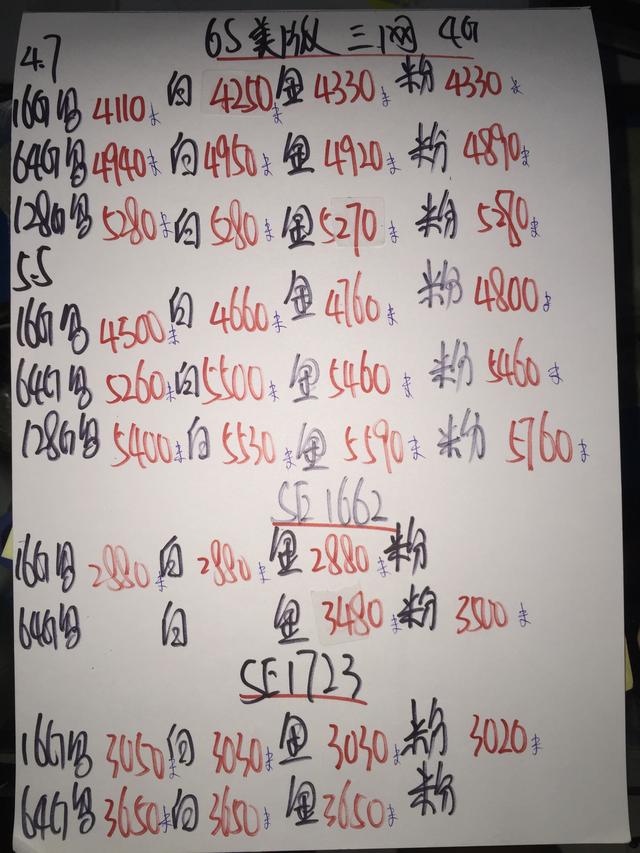 6S美版三网 4G
4.7
16G黑 4110 白 4250 金 4330 粉 4330
64G黑 4940 白 4950 金 4920 粉 4890
128G黑 5280 白 5280 金 5270 粉 5280
5.5
16G黑 4500 白 4660 金 4760 粉 4800
64G黑 5260 白 5500 金 5460 粉 5460
128G黑 5400 白 5530 金 5590 粉 5760
SE1662
16G黑 2880 白 2880 金 2880 粉
64G黑 白 金 3480 粉 3500
SE1723
16G黑 3050 白 3030 金 3030 粉 3020
64G黑 3650 白 3650 金 3650 粉